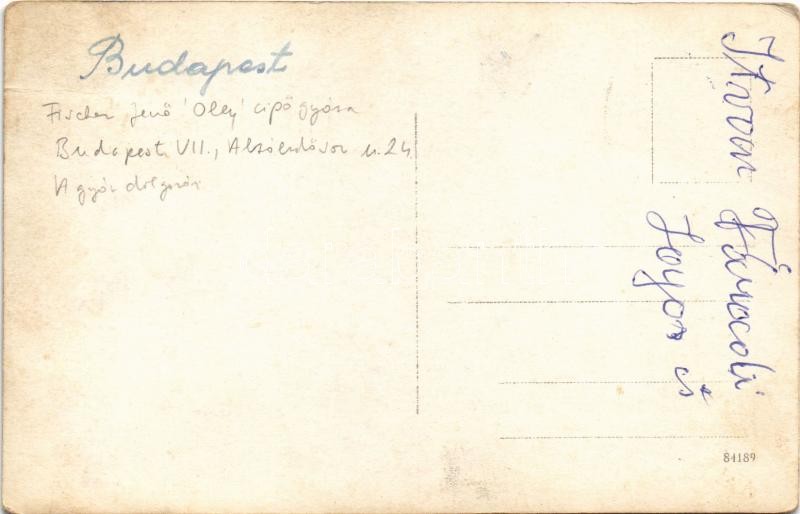 Budapest
Fischer Jenő 'Olly' cipőgyára
Budapest VII., Alsóerdősor u. 24.
A gyár dolgozói
István
és
84189